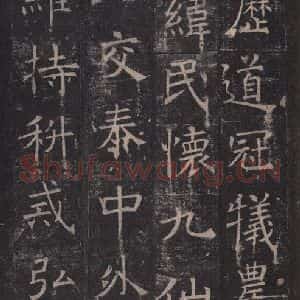 歷道冠犧農
緯民懷九仙
交泰中外
維持秔戎弘
Shufawang.CN